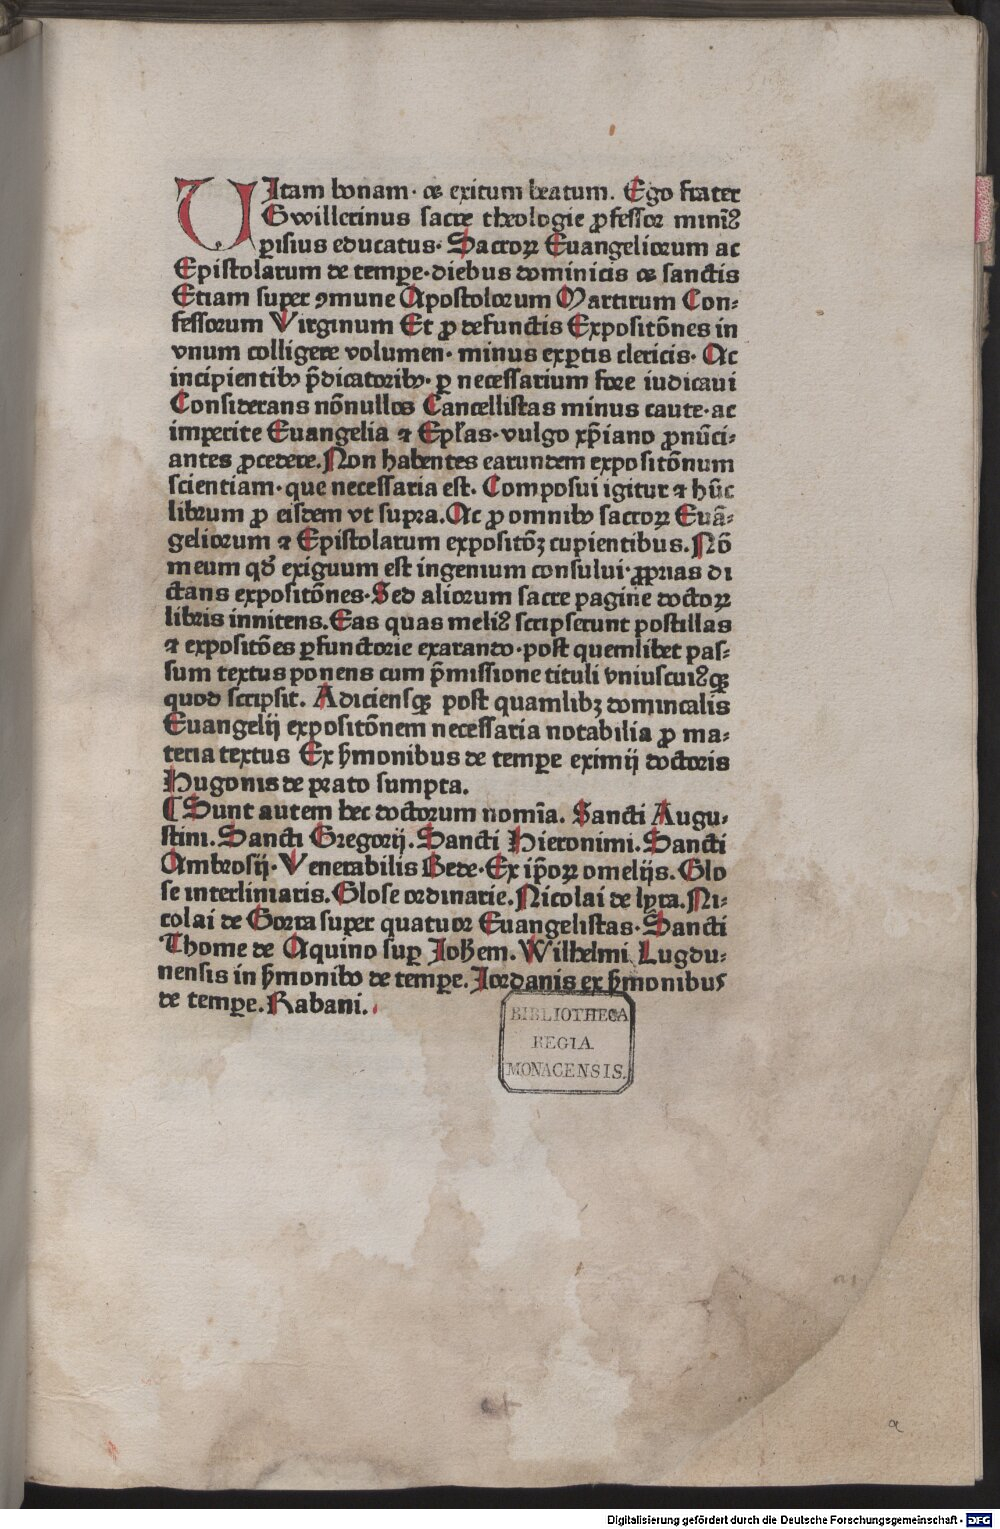 UItam bonam· ⁊ exitum beatum. Ego frater
Gwillerinus sacre theologie ꝓfessor minīꝰ
ꝑisius educatus· Sacroꝝ Euangeliorum ac
Epistolarum de tempe·diebus dominicis ⁊ sanctis
Etiam super ꝯmune Apostolorum Martirum Con⸗
fessorum Virginum Et ꝓ defunctis Expositōnes in
vnum colligere volumen· minus exꝑtis clericis· Ac
incipientibꝰ p̄dicatoribꝰ· ꝑ necessarium fore iudicaui
Considerans nōnullos Cancellistas minus caute·ac
imperite Euangelia ⁊ Ep̄las·vulgo xp̄iano ꝓnūci⸗
antes ꝓcedere. Non habentes earundem expositōnum
scientiam·que necessaria est. Composui igitur ⁊ hūc
librum ꝓ eisdem vt supra. Ac ꝓ omnibꝰ sacroꝝ Euā⸗
geliorum ⁊ Epistolarum expositōꝫ cupientibus. Nō
meum qd̄ exiguum est ingenium consului·ꝓprias di
ctans expositōnes·Sed aliorum sacre pagine doctoꝝ
libris innitens. Eas quas meliꝰ scripserunt postillas
⁊ expositōes ꝑfunctorie exarando·post quemlibet pas⸗
sum textus ponens cum p̄missione tituli vniuscuiꝰqꝫ
quod scripsit. Adiciensqꝫ post quamlibꝫ domincalis
Euangelij expositōnem necessaria notabilia ꝓ ma⸗
teria textus Ex ẜmonibus de tempe eximij doctoris
Hugonis de prato sumpta.
¶ Sunt autem hec doctorum nomīa. Sancti Augu⸗
stini. Sancti Gregorij. Sancti Hieronimi. Sancti
Ambrosij· Venerabilis Bede· Ex ip̄oꝝ omelijs. Glo
se interliniaris. Glose ordinarie. Nicolai de lyra. Ni⸗
colai de Gorra super quatuor Euangelistas· Sancti
Thome de Aquino suꝑ Joħem. Wilhelmi Lugdu⸗
nensis in ẜmonibꝰ de tempe. Jordanis ex ẜmonibus
de tempe. Rabani.
BIBLIOTHECA
REGIA
MONACENSIS.
a
Digitalisierung gefördert durch die Deutsche Forschungsgemeinschaft - DFG